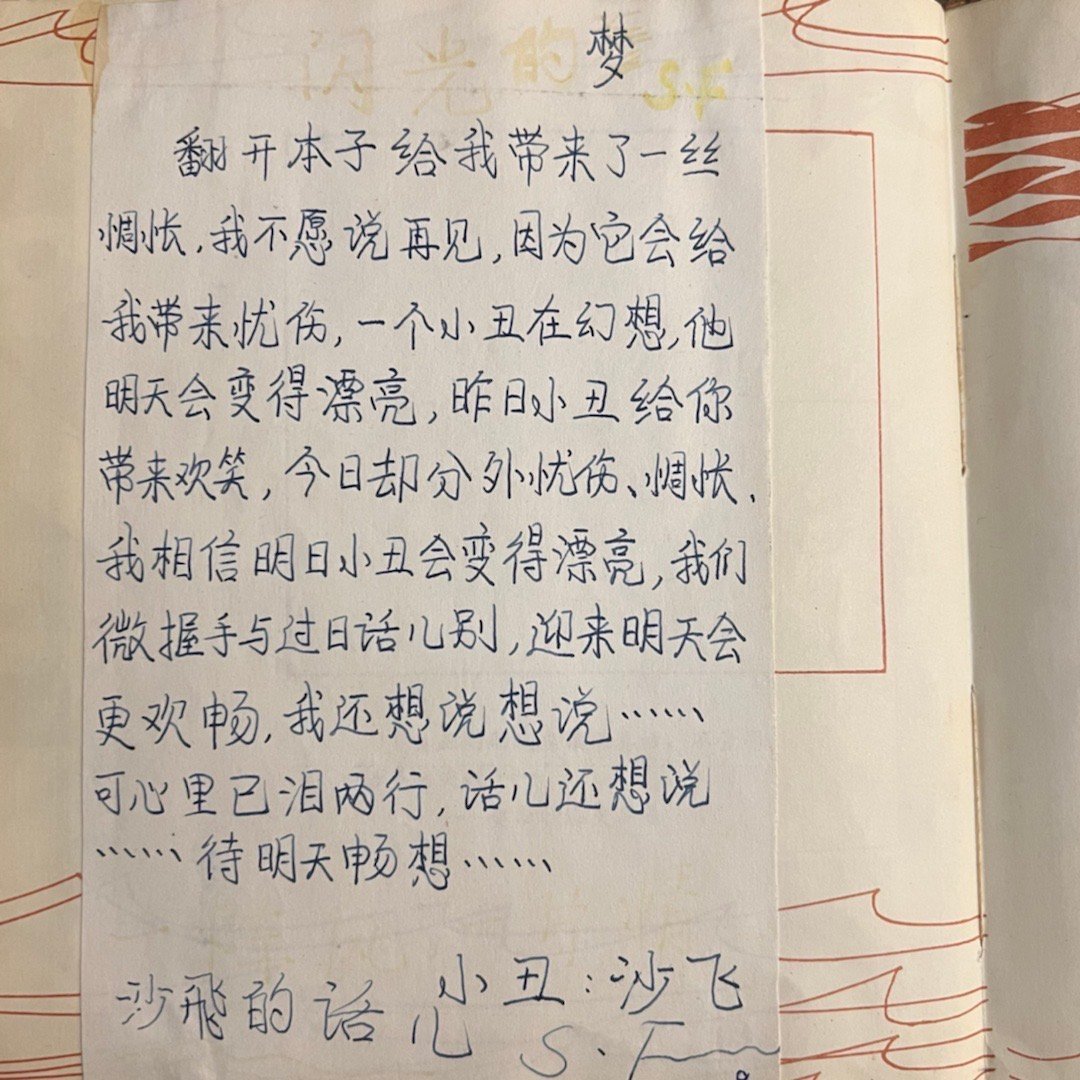 闪光的
梦
S.F
翻开本子给我带来了一丝
惆怅,我不愿说再见,因为它会给
我带来忧伤,一个小丑在幻想,他
明天会变得漂亮,昨日小丑给你
带来欢笑,今日却分外忧伤、惆怅、
我相信明日小丑会变得漂亮,我们
微握手与过日话儿别,迎来明天会
更欢畅,我还想说想说……
可心里已泪两行,话儿还想说
……待明天畅想……
小丑:沙飞
沙飛的话儿
S.F